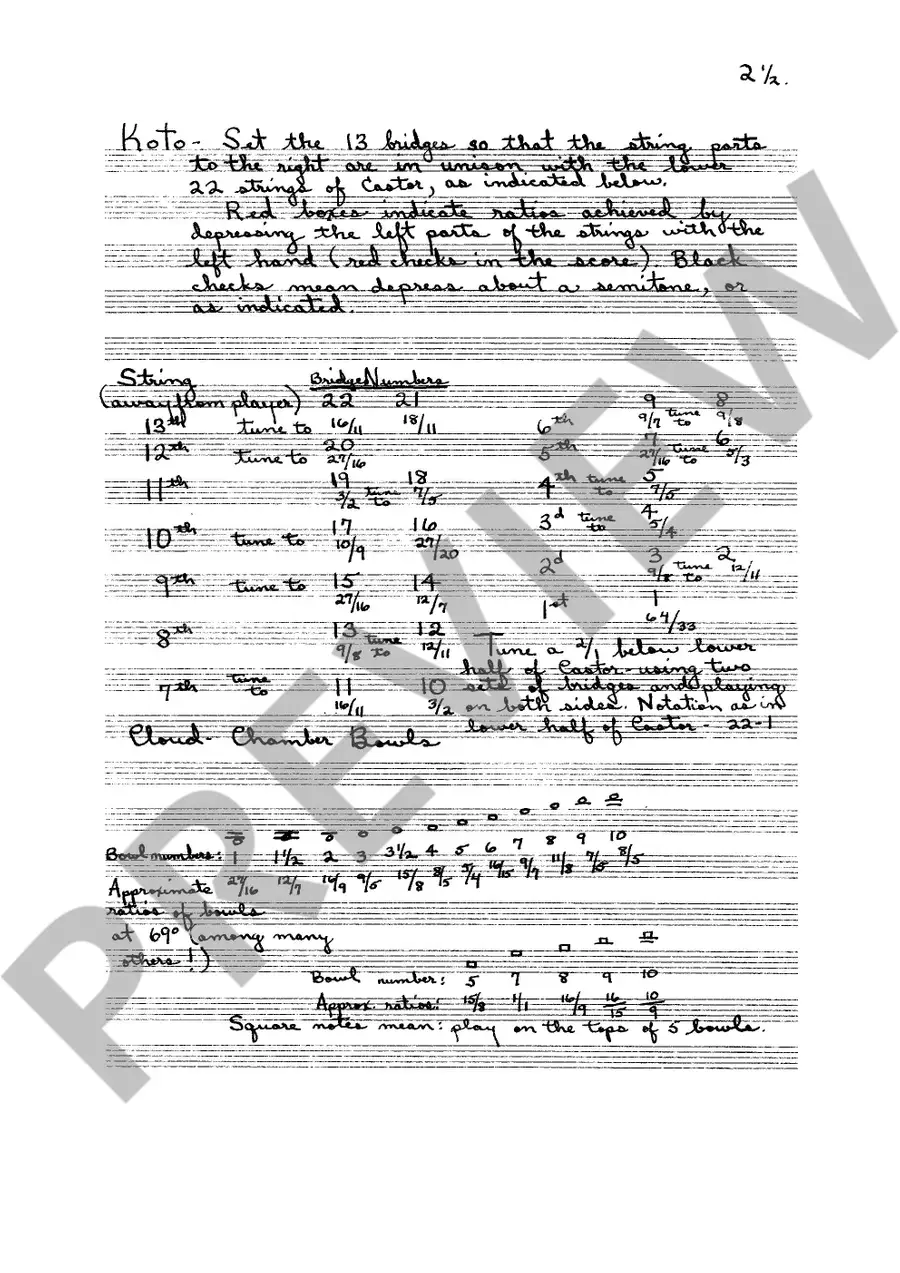 2 1/2.
Koto - Set the 13 bridges so that the string parts
to the right are in unison with the lower
22 strings of Castor, as indicated below.
Red boxes indicate ratios achieved by
depressing the left parts of the strings with the
left hand (red checks in the score). Black
checks mean depress about a semitone, or
as indicated.
String Bridge Numbers
(away from player) 22 21
13th tune to 16/11 18/11
20
12th tune to 27/16
19 18
11th 3/2 tune to 7/5
17 16
10th tune to 10/9 27/20
15 14
9th tune to 27/16 12/7
13 12
8th 9/8 tune to 12/11
7th tune to 11 10
16/11 3/2
9 8
6th 9/7 tune to 9/8
7 6
5th 27/16 tune to 5/3
5
4th tune to 7/5
4
3d tune to 5/4
3 2
2d 9/8 tune to 12/11
1
1st 64/33
Tune a 2/1 below lower
half of Castor - using two
sets of bridges and playing
on both sides. Notation as in
lower half of Castor - 22-1
Cloud-Chamber Bowls
Bowl numbers: 1 1 1/2 2 3 3 1/2 4 5 6 7 8 9 10
Approximate 27/16 12/7 16/9 9/5 15/8 8/5 5/4 16/15 9/7 11/8 7/5 8/5
ratios of bowls
at 69° (among many
others!)
Bowl number: 5 7 8 9 10
Approx. ratios: 15/8 1/1 16/9 16/15 10/9
Square notes mean: play on the tops of 5 bowls.
PREVIEW